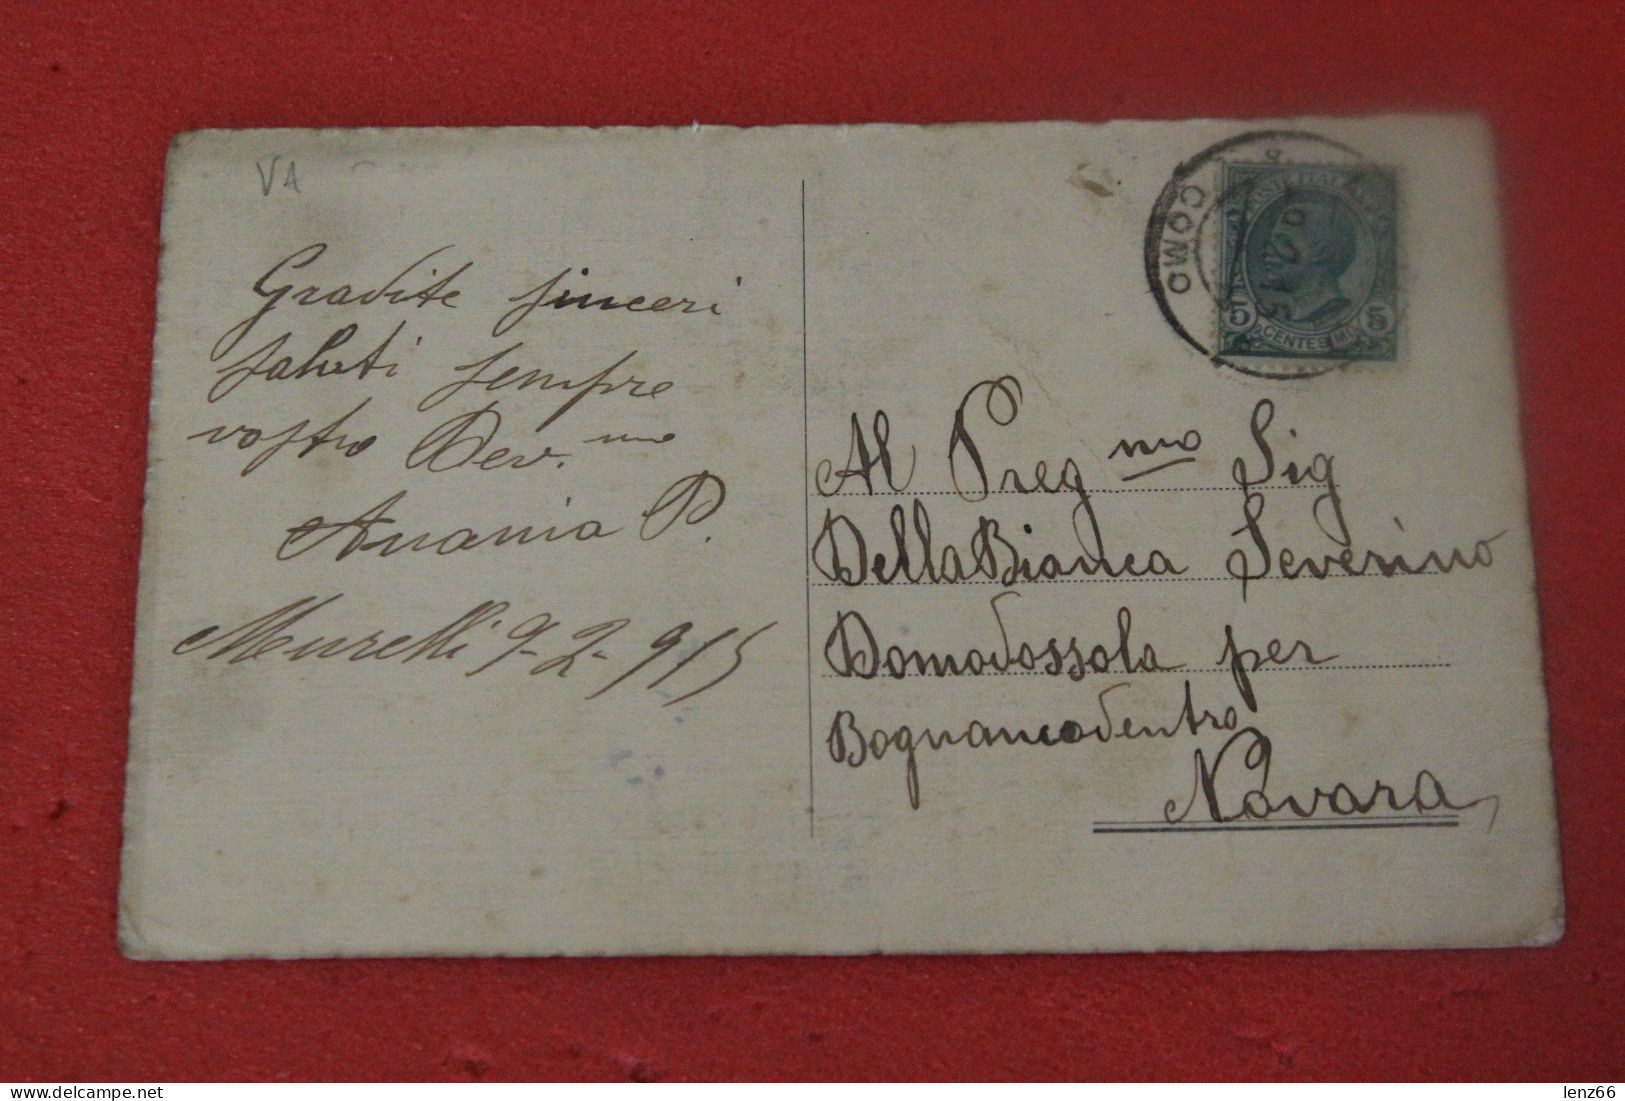 VA
Gradite sinceri
saluti sempre
vostro Dev.mo
Anania P.
Murelli 9-2-915
COMO
POSTE ITALIANE
5 CENTESIMI 5
Al Pregmo Sig
Della Bianca Severino
Domodossola per
Bognancodentro
Novara
delcampe.net
lenz66